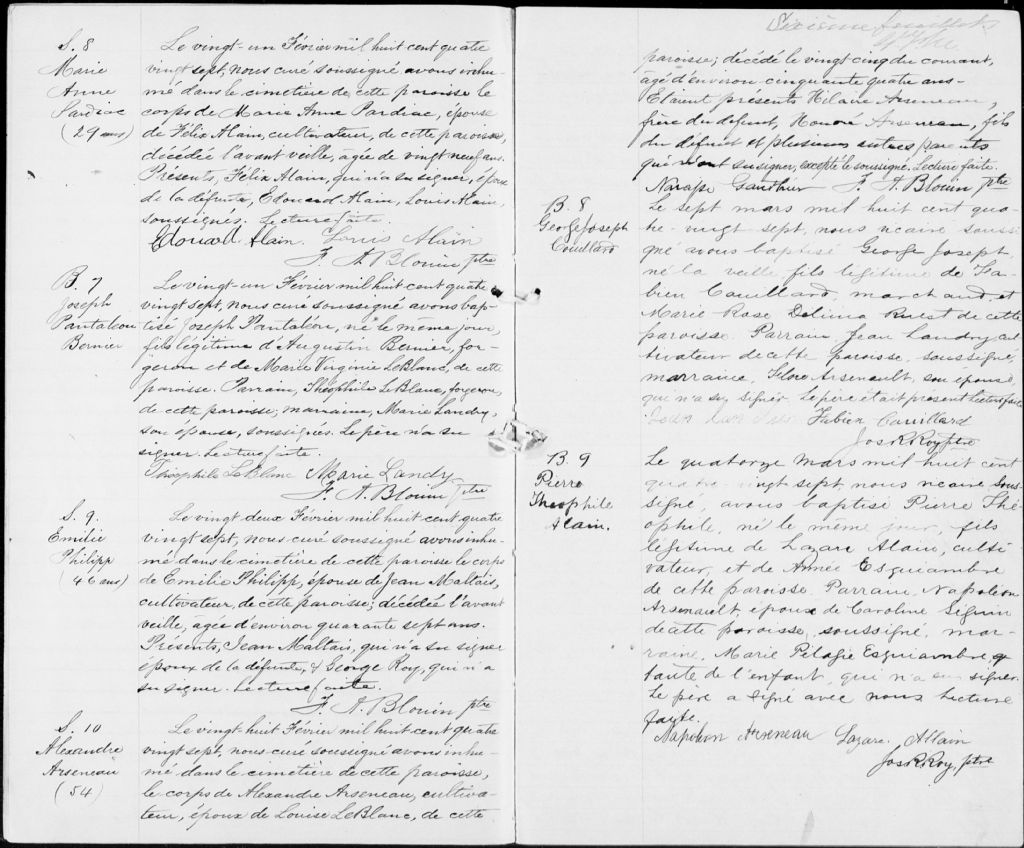 S. 8
Marie
Anne
Pardiac
(29 ans)
Le vingt-un Février mil huit cent quatre
vingt sept, nous curé soussigné avons inhu-
mé dans le cimetière de cette paroisse le
corps de Marie Anne Pardiac, épouse
de Félix Alain, cultivateur, de cette paroisse,
décédée l'avant veille, agée de vingt neuf ans.
Présents, Félix Alain, qui n'a su signer, époux
de la défunte, Edouard Alain, Louis Alain,
soussignés. Lecture faite.
Edouard Alain. Louis Alain
F. A. Blouin ptre
B. 7
Joseph
Pantaléon
Bernier
Le vingt-un Février mil huit cent quatre
vingt sept, nous curé soussigné avons bap-
tisé Joseph Pantaléon, né le même jour,
fils légitime d'Augustin Bernier, for-
geron et de Marie Virginie LeBlanc, de cette
paroisse. Parrain, Théophile LeBlanc, forgeron,
de cette paroisse; marraine, Marie Landry,
son épouse, soussignés. Le père n'a su
signer. Lecture faite.
Théophile LeBlanc Marie Landry
F. A. Blouin ptre
S. 9.
Emilie
Philipp
(46 ans)
Le vingt deux Février mil huit cent quatre
vingt sept, nous curé soussigné avons inhu-
mé dans le cimetière de cette paroisse le corps
de Emilie Philipp, épouse de Jean Maltais,
cultivateur, de cette paroisse; décédée l'avant
veille, agée d'environ quarante sept ans.
Présents, Jean Maltais, qui n'a su signer
époux de la défunte, & George Roy, qui n'a
su signer. Lecture faite.
F. A. Blouin ptre
S. 10
Alexandre
Arseneau
(54)
Le vingt-huit Février mil huit cent quatre
vingt sept, nous curé soussigné avons inhu-
mé dans le cimetière de cette paroisse,
le corps de Alexandre Arseneau, cultiva-
teur, époux de Louise LeBlanc, de cette
Sixième feuillet
paroisse; décédé le vingt cinq du courant,
agé d'environ cinquante quatre ans-
Etaient présents Hilaire Arseneau,
frère du défunt, Honoré Arseneau, fils
du défunt et plusieurs autres parents
qui n'ont su signer, excepté le soussigné. Lecture faite.
Narcisse Gauthier F. A. Blouin ptre
B. 8
George Joseph
Couillard
Le sept mars mil huit cent qua-
tre-vingt sept, nous vicaire soussi
gné avons baptisé George Joseph
né la veille fils légitime de Fa-
bien Couillard, marchand, et
Marie Rose Delima Ruest de cette
paroisse. Parrain, Jean Landry cul
tivateur de cette paroisse, soussigné,
marraine, Flore Arsenault, son épouse,
que n'a su signer. Le père était présent Lecture faite
Fabien Couillard
Jos R Roy ptre
B. 9
Pierre
Théophile
Alain.
Le quatorze mars mil huit cent
quatre-vingt sept nous vicaire sous-
signé, avons baptisé Pierre Thé
ophile, né le même jour, fils
légitime de Lazare Alain, culti
vateur, et de Année Esquiambre
de cette paroisse. Parrain, Napoléon
Arsenault, époux de Caroline Séguin
de cette paroisse, soussigné, mar-
raine, Marie Pélagie Esquiambre,
tante de l'enfant, qui n'a su signer.
Le père a signé avec nous Lecture
faite.
Napoléon Arseneau Lazare Allain
Jos R. Roy, ptre